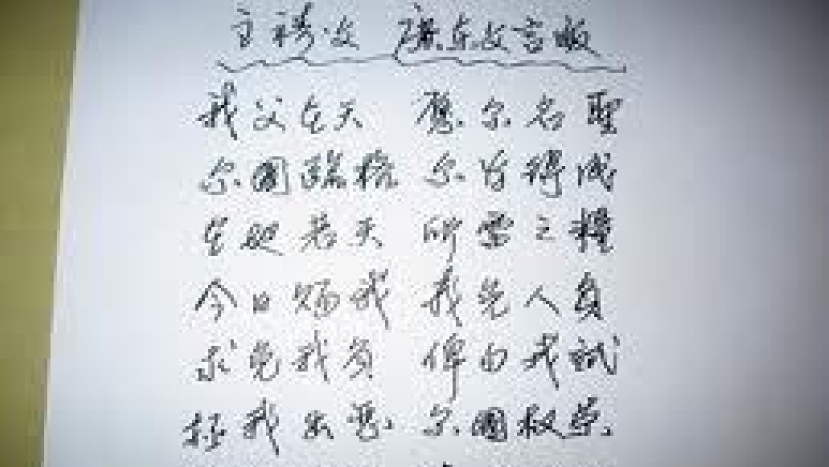 主祷文 廣东文言版
我父在天 愿尔名聖
尔國臨格 尔旨得成
在地若天 所需之糧
今日赐我 我免人負
求免我負 俾勿我試
拯我出惡 尔國权荣